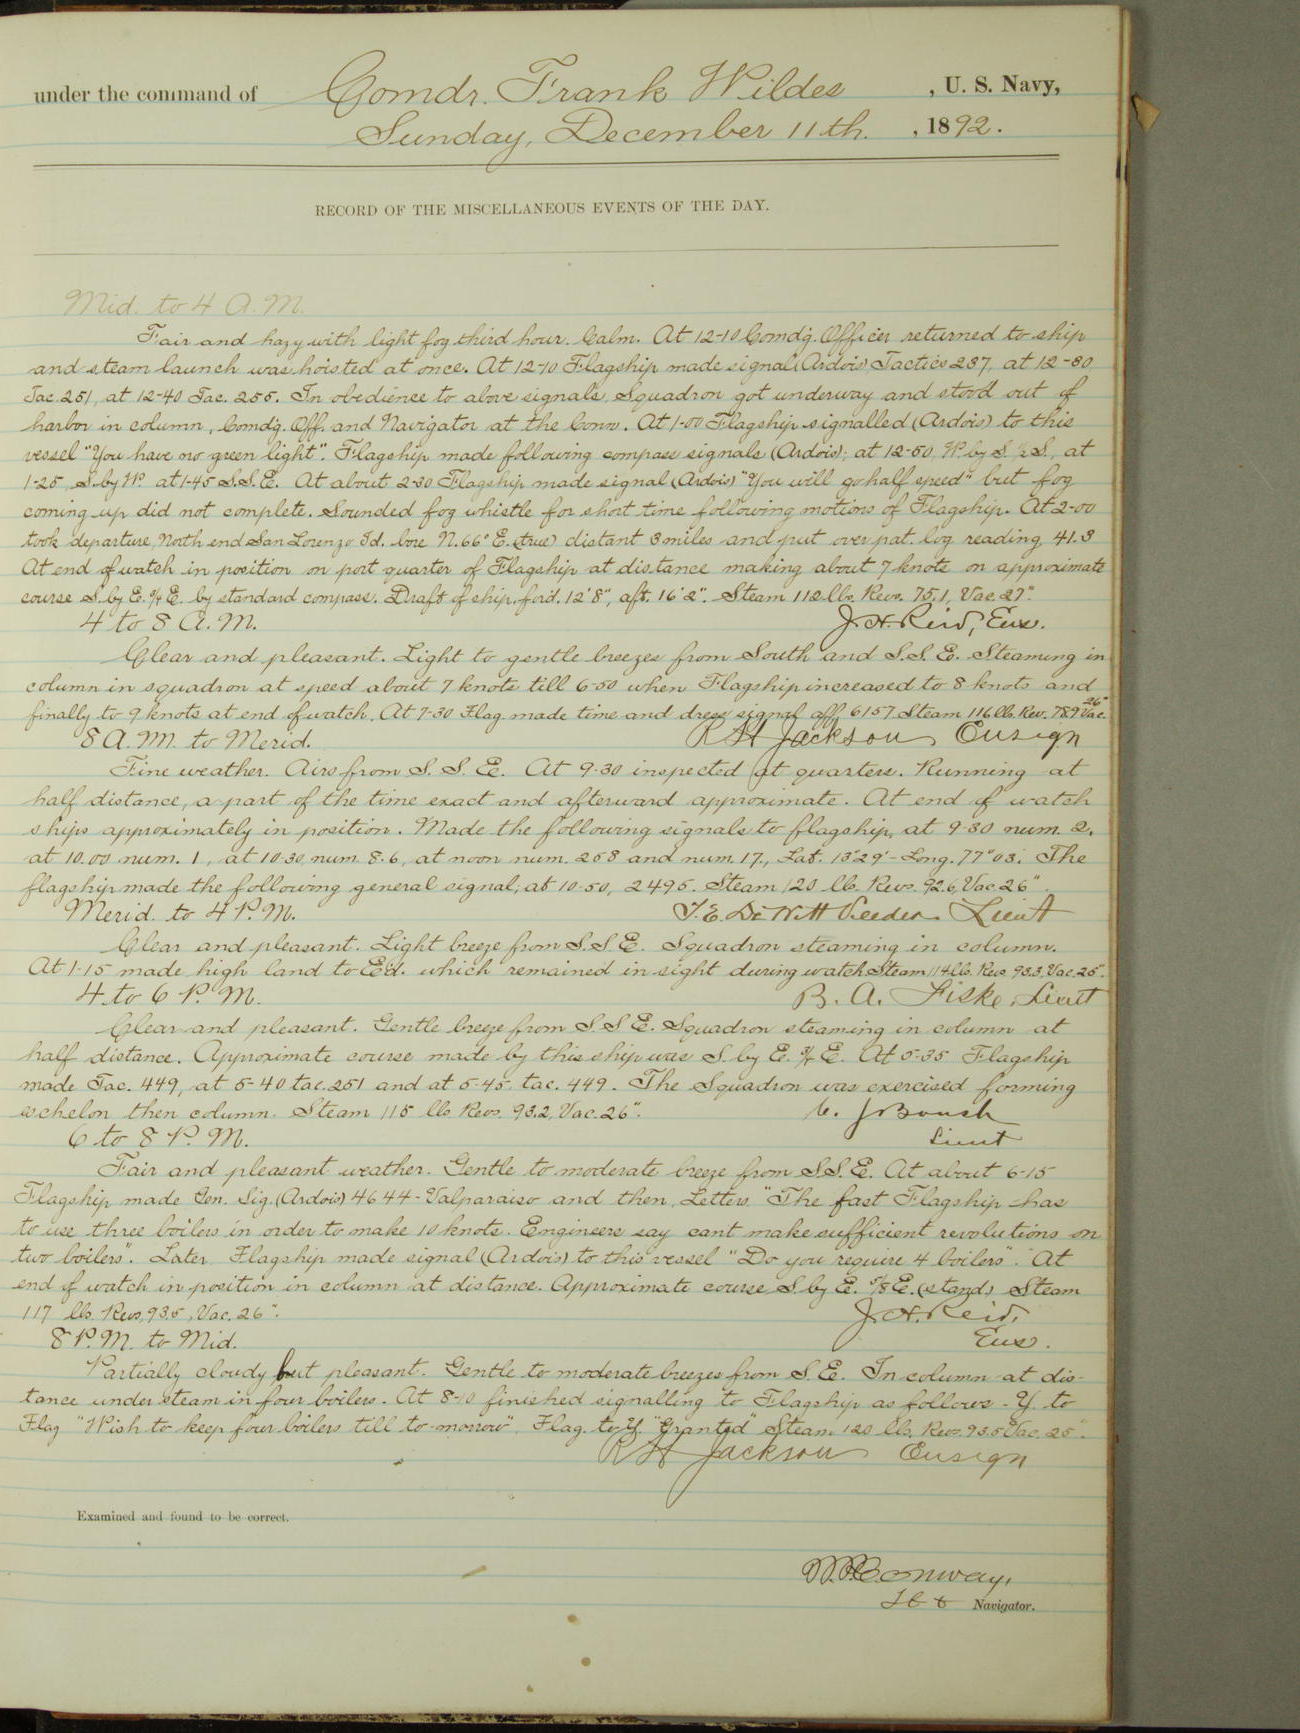 under the command of Comdr. Frank Wildes, U. S. Navy,
Sunday, December 11th., 1892.
RECORD OF THE MISCELLANEOUS EVENTS OF THE DAY.
Mid. to 4 A.M.
Fair and hazy with light fog third hour. Calm. At 12-10 Comdg. Officer returned to ship
and steam launch was hoisted at once. At 12-10 Flagship made signal (Ardois) Tactics 287, at 12-30
Tac. 251, at 12-40 Tac. 255. In obedience to above signals, Squadron got underway and stood out of
harbor in column, Comdg. Off. and Navigator at the Conn. At 1-00 Flagship signalled (Ardois) to this
vessel "You have no green light". Flagship made following compass signals (Ardois); at 12-50, W. by S. ½ S., at
1-25, S. by W. at 1-45 S.S.E. At about 2-30 Flagship made signal (Ardois) "You will go half speed" but fog
coming up did not complete. Sounded fog whistle for short time following motions of Flagship. At 2-00
took departure, North end San Lorenzo Id. bore N. 66° E. (true) distant 3 miles and put over pat. log reading 41.3
At end of watch in position on port quarter of Flagship at distance making about 7 knots on approximate
course S. by E. ¾ E. by standard compass. Draft of ship, for'd. 12'8", aft. 16'2". Steam 112 lbs. Revs. 75.1, Vac. 27".
4 to 8 A.M. J. H. Reid, Ens.
Clear and pleasant. Light to gentle breezes from South and S.S.E. Steaming in
column in squadron at speed about 7 knots till 6-50 when Flagship increased to 8 knots and
finally to 9 knots at end of watch. At 7-30 Flag. made time and dress signal off, 6157 Steam 116 lbs. Rev. 78.9 Vac. 26"
8 A.M. to Merid. R H Jackson Ensign
Fine weather. Airs from S. S. E. At 9-30 inspected at quarters. Running at
half distance, a part of the time exact and afterward approximate. At end of watch
ships approximately in position. Made the following signals to flagship, at 9-30 num. 2,
at 10.00 num. 1, at 10-30, num. 8.6, at noon num. 258 and num. 17., Lat. 13°29' - Long. 77°03'. The
flagship made the following general signal; at 10-50, 2495. Steam 120 lb. Revs. 92.6, Vac. 26".
Merid. to 4 P.M. T. E. DeWitt Veeder Lieut
Clear and pleasant. Light breeze from S.S.E. Squadron steaming in column.
At 1-15 made high land to E'd. which remained in sight during watch. Steam 114 lb. Revs. 93.3, Vac. 25".
4 to 6 P.M. B. A. Fiske, Lieut
Clear and pleasant. Gentle breeze from S.S.E. Squadron steaming in column at
half distance. Approximate course made by this ship was S. by E. ¾ E. At 5-35 Flagship
made Tac. 449, at 5-40 tac. 251 and at 5-45 tac. 449. The Squadron was exercised forming
echelon then column. Steam 115 lb. Revs. 93.2, Vac. 26".
C. J Boush
6 to 8 P.M. Lieut
Fair and pleasant weather. Gentle to moderate breeze from S.S.E. At about 6-15
Flagship made Gen. Sig. (Ardois) 4644 - Valparaiso and then, Letters, "The fast Flagship has
to use three boilers in order to make 10 knots. Engineers say cant make sufficient revolutions on
two boilers". Later Flagship made signal (Ardois) to this vessel "Do you require 4 boilers". At
end of watch in position in column at distance. Approximate course S. by E. ⅝ E. (stand) Steam
117 lbs. Revs. 93.5, Vac. 26". J. H. Reid,
8 P.M. to Mid. Ens.
Partially cloudy but pleasant. Gentle to moderate breezes from S.E. In column at dis-
tance under steam in four boilers. At 8-10 finished signalling to Flagship as follows - Y. to
Flag "Wish to keep four boilers till to-morrow". Flag. to Y. "Granted" Steam 120 lb, Revs. 93.5 Vac. 25".
R H Jackson Ensign
Examined and found to be correct.
Conway,
Navigator.